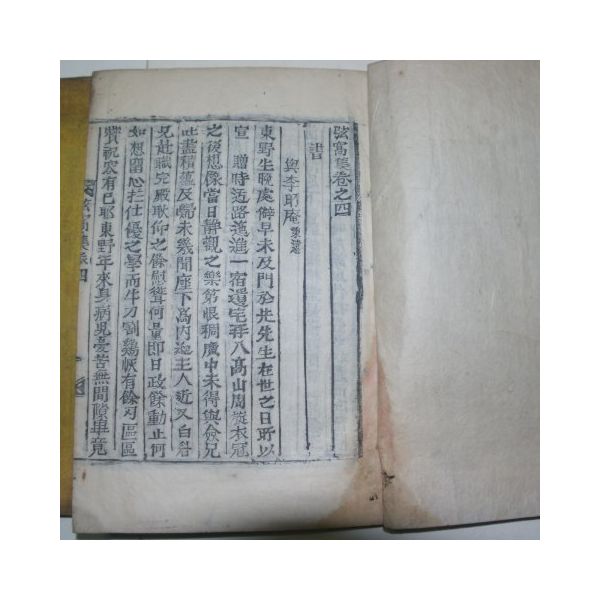 弦窩集卷之四
書
與李明庵東濬
東野生晩處僻早未及門於先先生在世之日所以
宣贈時迃路進一宿還宅再入高山周旋衣冠
之後想像當日靜觀之樂第恨稠廣中未得與僉兄
吐盡積蘊及歸未幾聞座下爲內
主人近又自
兄赴職完厥歎仰之餘慰聳何量卽日政餘動止何
如想留心於仕優之學而牛刀割鷄恢有餘刃區區
賀祝容有已耶東野年來身病兒憂苦無間隙畢竟
弦窩集卷四